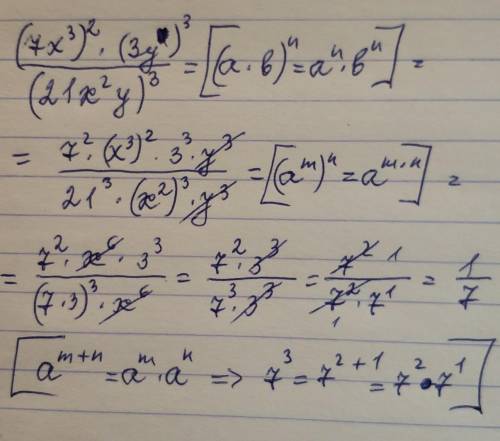 (7x³)² · (3y)³ / (21x²y)³ = [(a · b)ⁿ = aⁿ · bⁿ] =
= 7² · (x³)² · 3³ · y³ / 21³ · (x²)³ · y³ = [(aᵐ)ⁿ = aᵐ·ⁿ] =
= 7² · x⁶ · 3³ / (7 · 3)³ · x⁶ = 7² · 3³ / 7³ · 3³ = 7² 1 / 7² · 7¹ 1 = 1 / 7
[aᵐ⁺ⁿ = aᵐ · aⁿ => 7³ = 7²⁺¹ = 7² · 7¹]